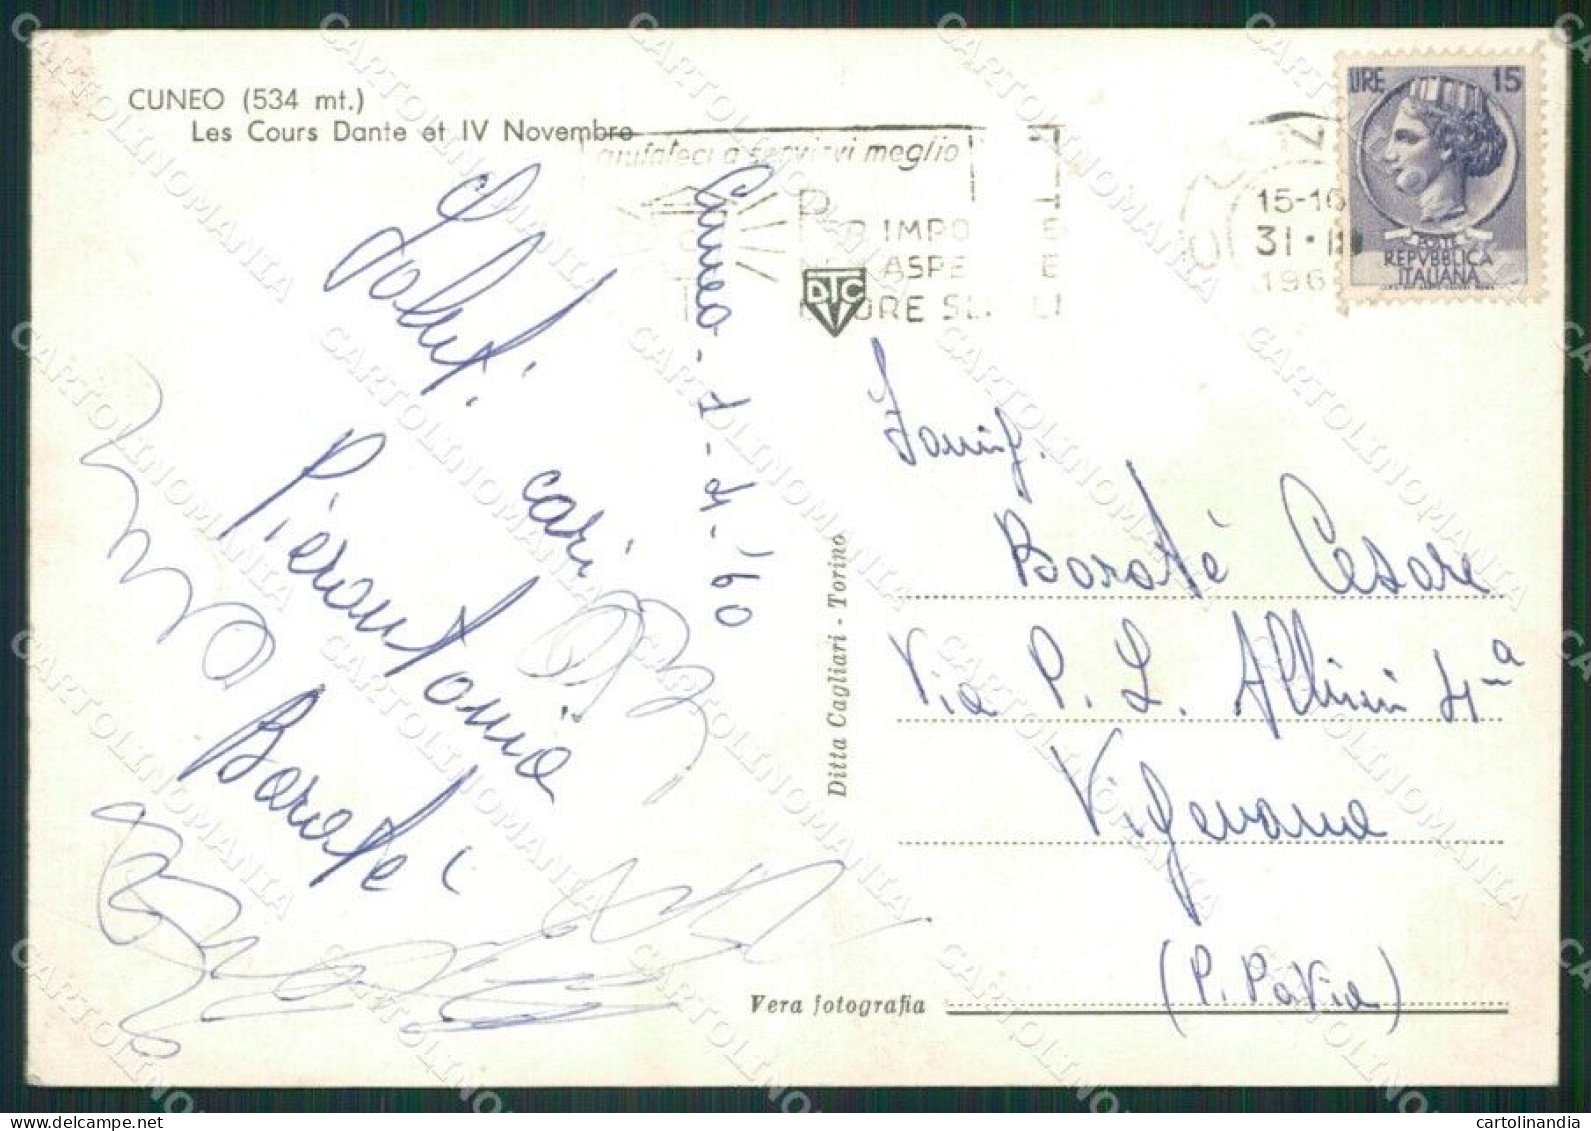 CUNEO (534 mt.)
Les Cours Dante et IV Novembre
aiutateci a servirvi meglio
PER IMPO
ASPE
ORE SE
15-16
31·
196
LIRE 15
POSTE
REPVBBLICA
ITALIANA
DTC
Cuneo - 1-4-960
Saluti
cari
Pierantonio
Baratè
Famig.
Baratè Cesare
Via P. L. Albini 4ª
Vigevano
(P. Pavia)
Ditta Cagliari - Torino
Vera fotografia
CARTOLINOMANIA
cartolinandia